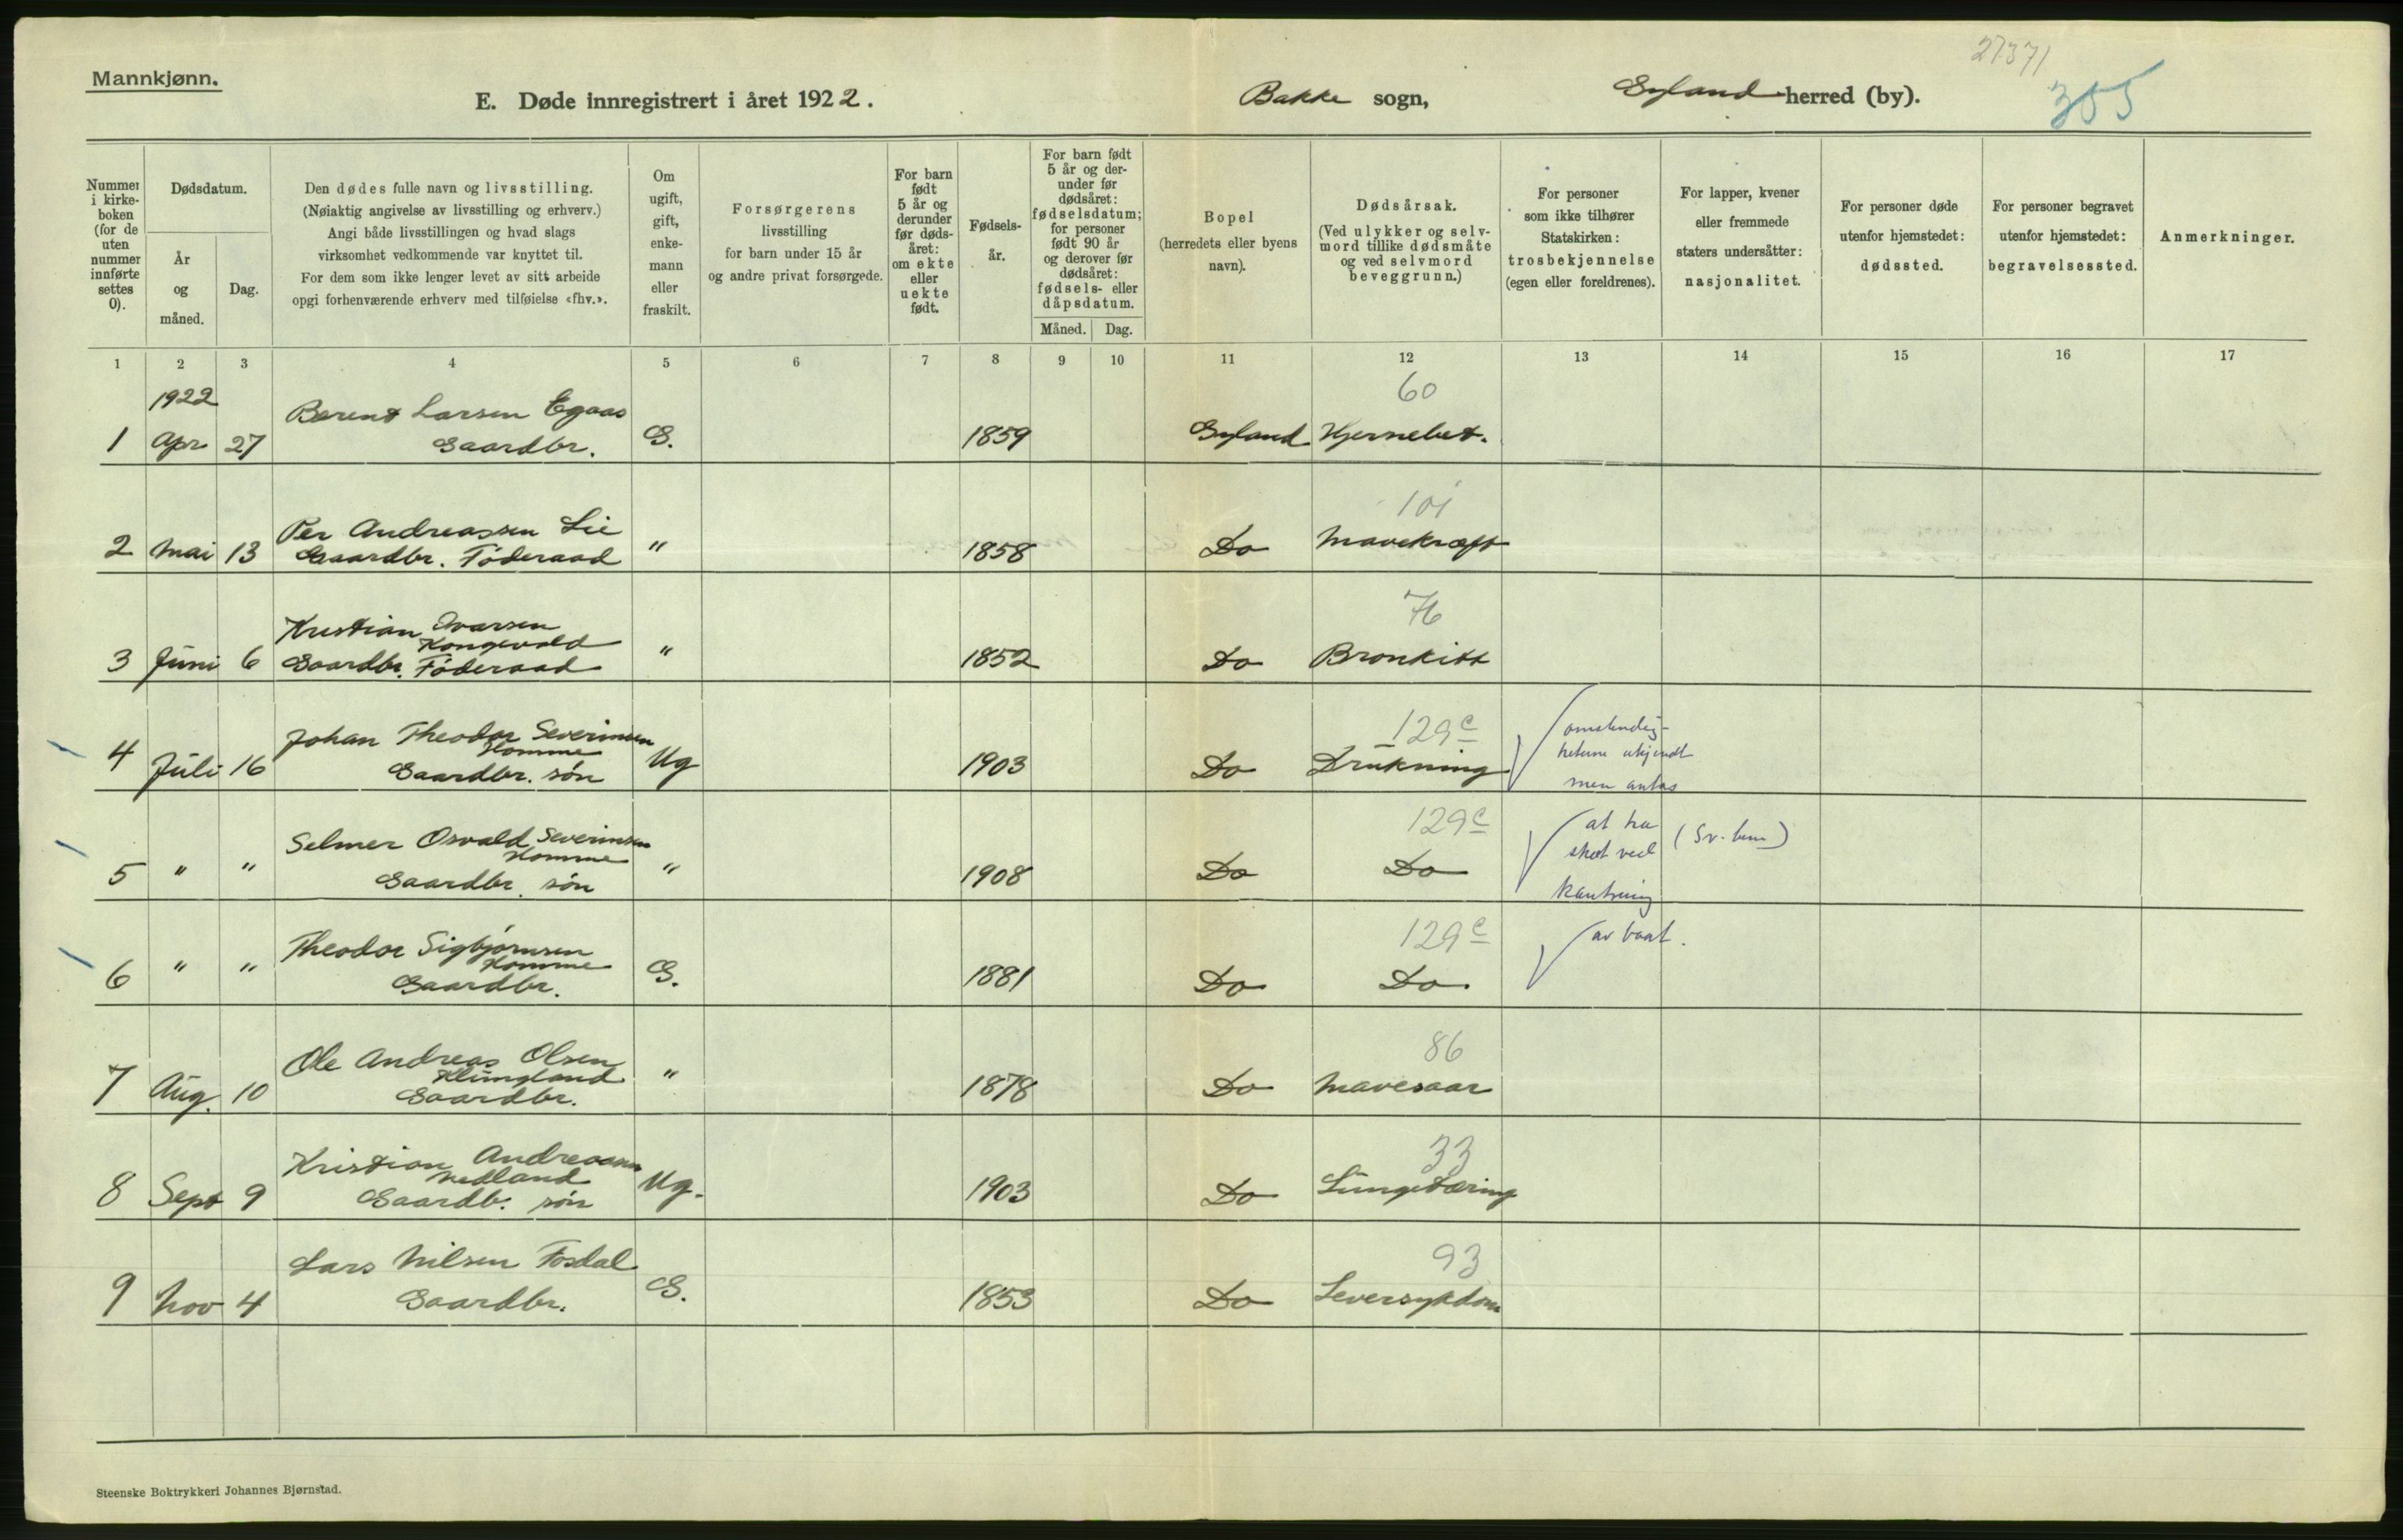 27371
Mannkjønn.
E. Døde innregistrert i året 1922. Bakke sogn, Gyland herred (by).
355
Nummer i kirkeboken (for de uten nummer innførte settes 0).
Dødsdatum.
År og måned.
Dag.
Den dødes fulle navn og livsstilling.
(Nøiaktig angivelse av livsstilling og erhverv.)
Angi både livsstillingen og hvad slags
virksomhet vedkommende var knyttet til.
For dem som ikke lenger levet av sitt arbeide
opgi forhenværende erhverv med tilføielse «fhv.».
Om ugift, gift, enkemann eller fraskilt.
Forsørgerens
livsstilling
for barn under 15 år
og andre privat forsørgede.
For barn født 5 år og derunder før dødsåret: om ekte eller uekte født.
Fødselsår.
For barn født 5 år og derunder før dødsåret: fødselsdatum; for personer født 90 år og derover før dødsåret: fødsels- eller dåpsdatum.
Måned. Dag.
Bopel
(herredets eller byens
navn).
Dødsårsak.
(Ved ulykker og selvmord tillike dødsmåte og ved selvmord beveggrunn.)
For personer
som ikke tilhører
Statskirken:
trosbekjennelse
(egen eller foreldrenes).
For lapper, kvener
eller fremmede
staters undersåtter:
nasjonalitet.
For personer døde
utenfor hjemstedet:
dødssted.
For personer begravet
utenfor hjemstedet:
begravelsessted.
Anmerkninger.
1 2 3 4 5 6 7 8 9 10 11 12 13 14 15 16 17
1922 60
Berent Larsen Egaas
1 Apr 27 Gaardbr. G. 1859 Gyland Hjernebet.
101
Per Andreassen Lie
2 Mai 13 Gaardbr. Föderaad " 1858 Do Mavekræft
76
Kristian Ivarsen
Kongevold
3 Juni 6 Gaardbr. Föderaad " 1852 Do Bronkitt
129c omstendig-
Johan Theodor Severinsen
Homme heterne ukjendt
4 Juli 16 Gaardbr. sön Ug 1903 Do Drukning men antas
129c at ha
Selmer Osvald Severinsen
Homme sket ved (Sv. bem)
5 " " Gaardbr. sön " 1908 Do Do kantring
129c av baat.
Theodor Sigbjörnsen
Homme
6 " " Gaardbr. G. 1881 Do Do.
86
Ole Andreas Olsen
Klungland
7 Aug. 10 Gaardbr. " 1878 Do Mavesaar
33
Kristian Andreassen
Nedland
8 Sept 9 Gaardb. sön Ug. 1903 Do Lungetæring
93
Lars Nilsen Fosdal
9 Nov 4 Gaardbr. G. 1853 Do Leversykdom
Steenske Boktrykkeri Johannes Bjørnstad.